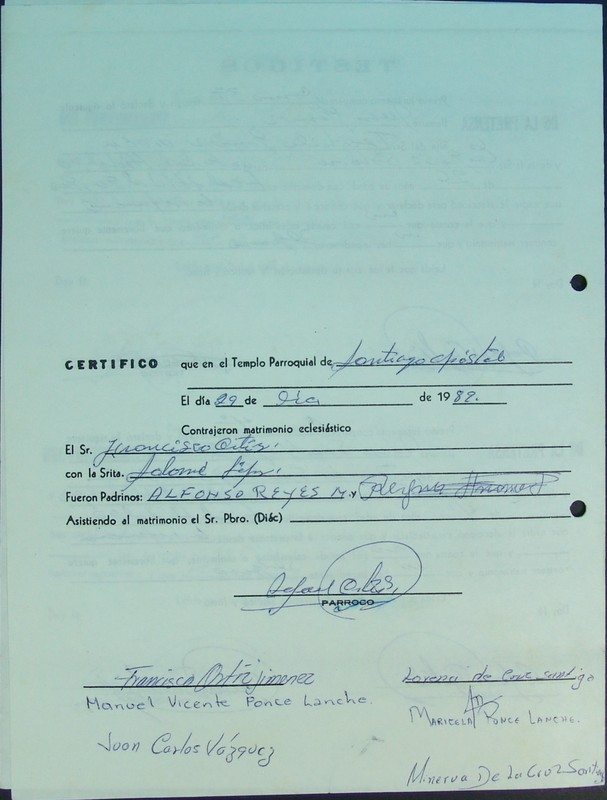 CERTIFICO que en el Templo Parroquial de Santiago Apóstol
El día 29 de Dic. de 1982.
Contrajeron matrimonio eclesiástico
El Sr. Francisco Ortiz.
con la Srita. Salomé
Fueron Padrinos: ALFONSO REYES M. y
Asistiendo al matrimonio el Sr. Pbro. (Diác)
PARROCO
Francisco Ortiz Jimenez
Lorena de
Manuel Vicente Ponce Lanche.
MARICELA PONCE LANCHE.
Juan Carlos Vázquez
Minerva De La Cruz